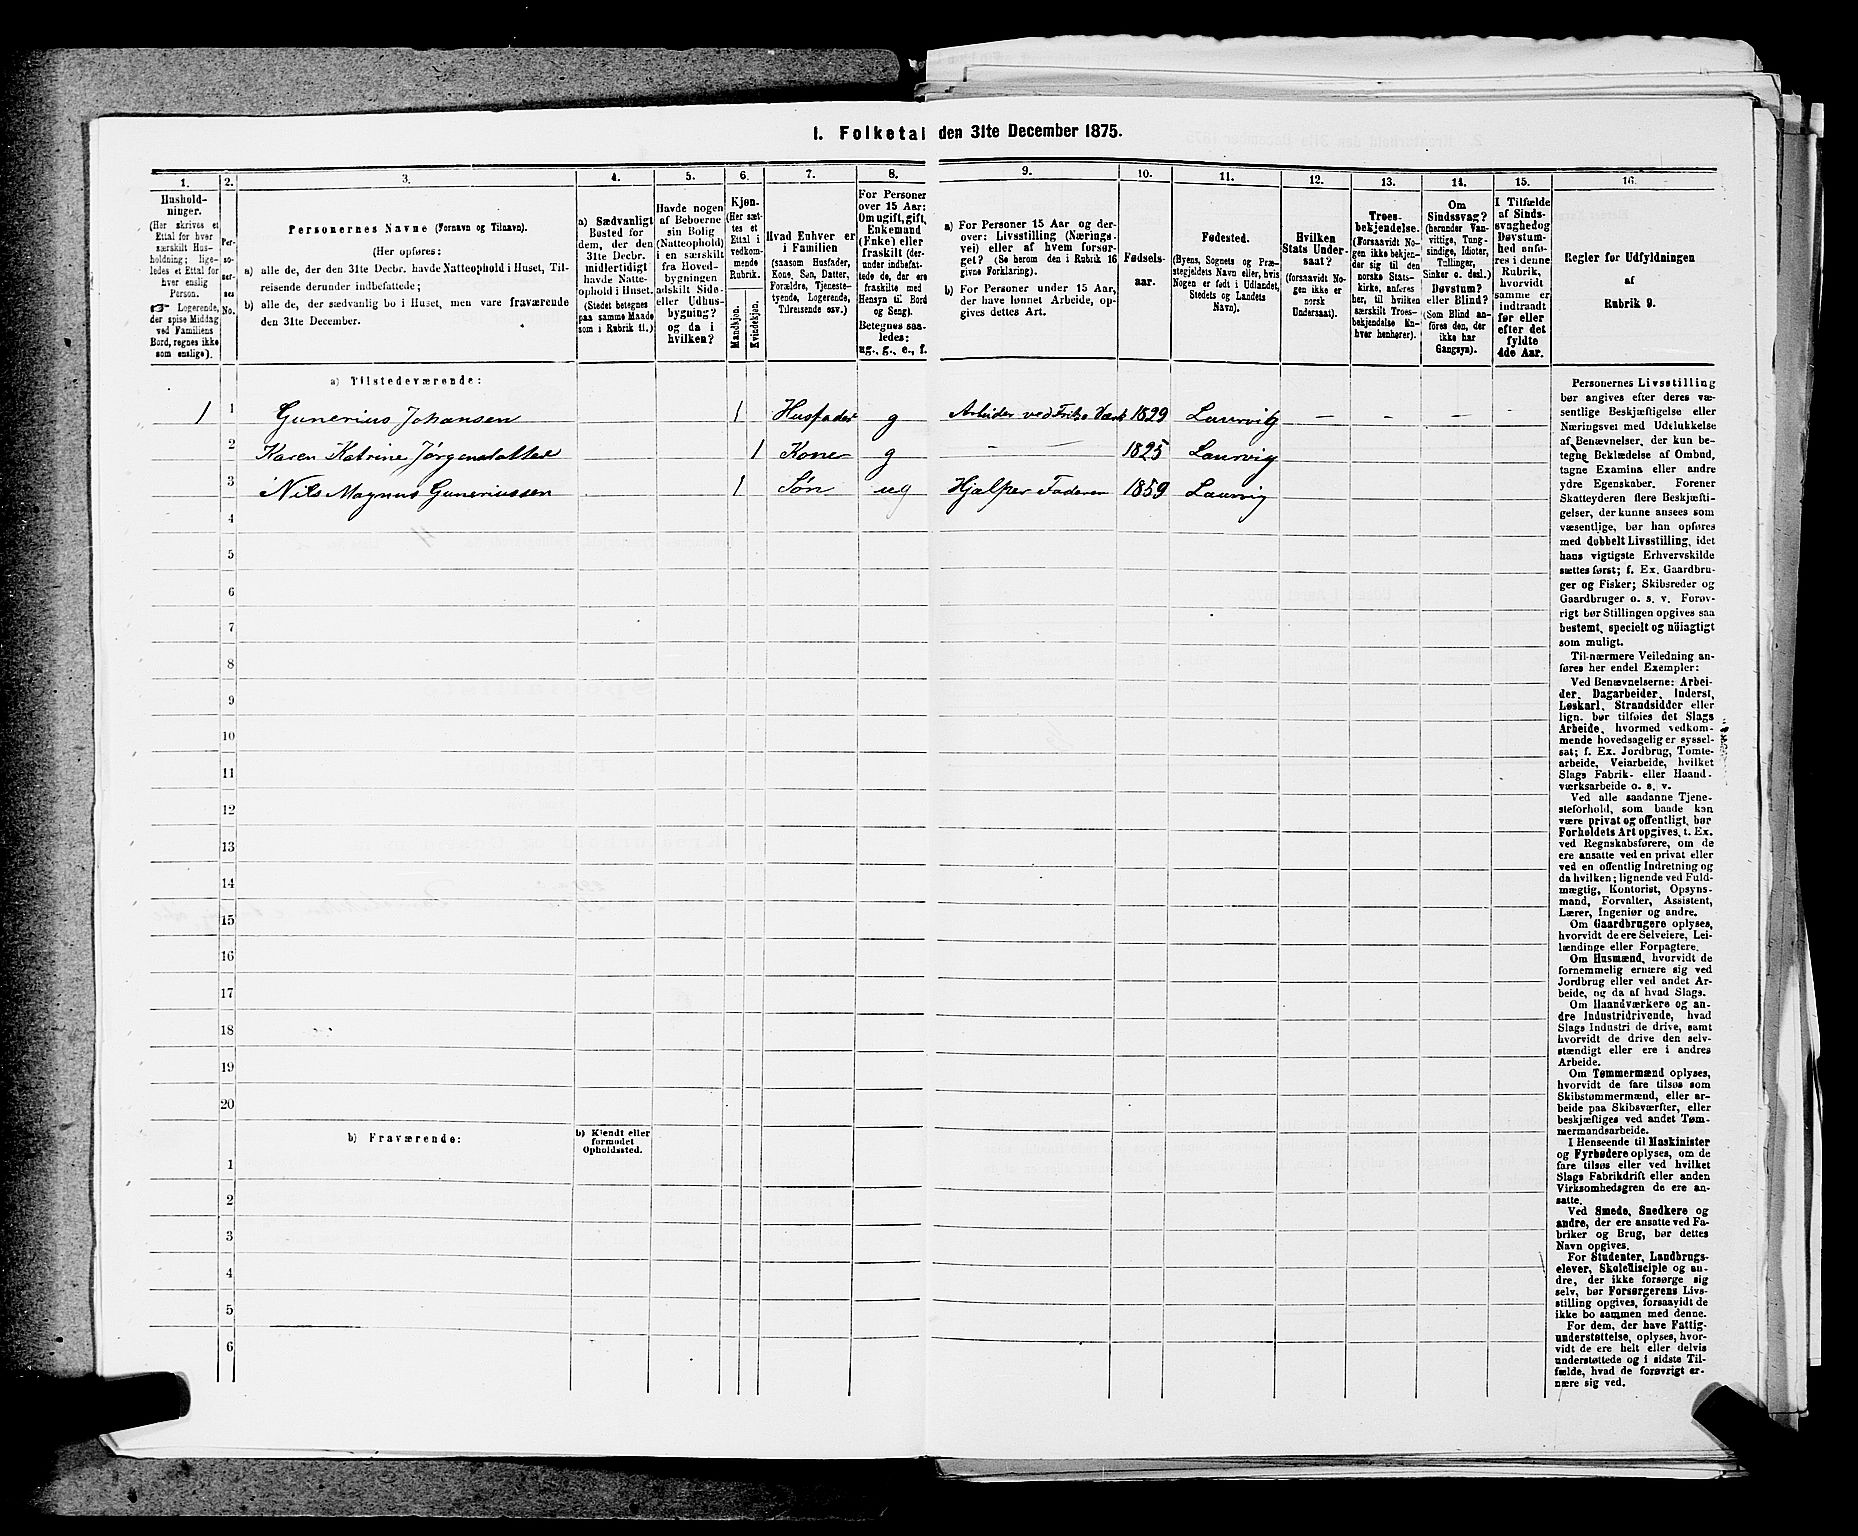 I. Folketal den 31te December 1875.
1.
Hushold-
ninger.
(Her skrives et
Ettal for hver
særskilt Hus-
holdning; lige-
ledes et Ettal for
hver enslig
Person.
☞ Logerende,
der spise Middag
ved Familiens
Bord, regnes ikke
som enslige).
2.
Per-
so-
ner-
nes
No.
3.
Personernes Navne (Fornavn og Tilnavn).
(Her opføres:
a) alle de, der den 31te Decbr. havde Natteophold i Huset, Til-
reisende derunder indbefattede;
b) alle de, der sædvanlig bo i Huset, men vare fraværende
den 31te December.
4.
a) Sædvanligt
Bosted for
dem, der den
31te Decbr.
midlertidigt
havde Natte-
ophold i Huset.
(Stedet betegnes
paa samme Maade
som i Rubrik 11.)
5.
Havde nogen
af Beboerne
sin Bolig
(Natteophold)
i en særskilt
fra Hoved-
bygningen
adskilt Side-
eller Udhus-
bygning?
og da i
hvilken?
6.
Kjøn.
(Her sæt-
tes et
Ettal i
vedkom-
mende
Rubrik.
Mandkjøn.
Kvindekjøn.
7.
Hvad Enhver er
i Familien
(saasom Husfader,
Kone, Søn, Datter,
Forældre, Tjeneste-
tyende, Logerende,
Tilreisende osv.)
8.
For Personer
over 15 Aar:
Om ugift, gift,
Enkemand
(Enke) eller
fraskilt (der-
under indbefat-
tede de, der ere
fraskilte med
Hensyn til Bord
og Seng).
Betegnes saa-
ledes:
ug., g., e., f.
9.
a) For Personer 15 Aar og der-
over: Livsstilling (Nærings-
vei) eller af hvem forsør-
get? (Se herom den i Rubrik 16
givne Forklaring).
b) For Personer under 15 Aar,
der have lønnet Arbeide, op-
gives dettes Art.
10.
Fødsels-
aar.
11.
Fødested.
(Byens, Sognets og Præ-
stegjeldets Navn eller, hvis
Nogen er født i Udlandet,
Stedets og Landets
Navn).
12.
Hvilken
Stats Under-
saat?
(forsaavidt No-
gen ikke er
norsk
Undersaat).
13.
Troes-
bekjendelse.
(Forsaavidt No-
gen ikke bekjen-
der sig til den
norske Stats-
kirke, anføres
her, til hvilken
særskilt Troes-
bekjendelse En-
hver henhører).
14.
Om
Sindssvag?
(herunder Van-
vittige, Tung-
sindige, Idioter,
Tullinger,
Sinker o. desl.)
Døvstum?
eller Blind?
(Som Blind an-
føres den, der
ikke har
Gangsyn).
15.
I Tilfælde
af Sinds-
svaghed og
Døvstum-
hed anfø-
res i denne
Rubrik,
hvorvidt
samme er
indtraadt
før eller
efter det
fyldte
4de Aar.
16.
Regler for Udfyldningen
af
Rubrik 9.
a) Tilstedeværende:
1 1 Gunerius Johansen 1 Husfader g Arbeider ved Fritzø Værk 1829 Laurvig – – – –
2 Karen Katrine Jørgensdatter 1 Kone g – – 1825 Laurvig
3 Nils Magnus Guneriussen 1 Søn ug Hjælper Faderen 1859 Laurvig
4
5
6
7
8
9
10
11
12
13
14
15
16
17
18
19
20
b) Fraværende:
b) Kjendt eller
formodet
Opholdssted.
1
2
3
4
5
6
Personernes Livsstilling
bør angives efter deres væ-
sentlige Beskjæftigelse eller
Næringsvei med Udelukkelse
af Benævnelser, der kun be-
tegne Beklædelse af Ombud,
tagne Examina eller andre
ydre Egenskaber. Forener
Skatteyderen flere Beskjæfti-
gelser, der kunne ansees som
væsentlige, bør han opføres
med dobbelt Livsstilling, idet
hans vigtigste Erhvervskilde
sættes først; f. Ex. Gaardbru-
ger og Fisker; Skibsreder og
Gaardbruger o. s. v. Forøv-
rigt bør Stillingen opgives saa
bestemt, specielt og nøiagtigt
som muligt.
Til nærmere Veiledning an-
føres her endel Exempler:
Ved Benævnelserne: Arbei-
der, Dagarbeider, Inderst,
Løskarl, Strandsidder eller
lign. bør tilføies det Slags
Arbeide, hvormed vedkom-
mende hovedsagelig er syssel-
sat; f. Ex. Jordbrug, Tomte-
arbeide, Veiarbeide, hvilket
Slags Fabrik- eller Haand-
værksarbeide o. s. v.
Ved alle saadanne Tjene-
steforhold, som baade kan
være privat og offentligt, bør
Forholdets Art opgives, t. Ex.
ved Regnskabsførere, om de
ere ansatte ved en privat eller
ved en offentlig Indretning og
da hvilken; lignende ved Fuld-
mægtig, Kontorist, Opsyns-
mand, Forvalter, Assistent,
Lærer, Ingeniør og andre.
Om Gaardbrugere oplyses,
hvorvidt de ere Selveiere, Lei-
lændinge eller Forpagtere.
Om Husmænd, hvorvidt de
fornemmelig ernære sig ved
Jordbrug eller ved andet Ar-
beide, og da af hvad Slags.
Om Haandværkere og an-
dre Industridrivende, hvad
Slags Industri de drive, samt
hvorvidt de drive den selv-
stændigt eller ere i andres
Arbeide.
Om Tømmermænd oplyses,
hvorvidt de fare tilsøs som
Skibstømmermænd, eller ar-
beide paa Skibsværfter, eller
beskjæftiges ved andet Tøm-
mermandsarbeide.
I Henseende til Maskinister
og Fyrbødere oplyses, om de
fare tilsøs eller ved hvilket
Slags Fabrikdrift eller anden
Virksomhedsgren de ere an-
satte.
Ved Smede, Snedkere og
andre, der ere ansatte ved Fa-
briker og Brug, bør dettes
Navn opgives.
For Studenter, Landbrugs-
elever, Skoledisciple og an-
dre, der ikke forsørge sig
selv, bør Forsørgerens Livs-
stilling opgives, forsaavidt de
ikke bo sammen med denne.
For dem, der have Fattig-
understøttelse, oplyses, hvor-
vidt de ere helt eller delvis
understøttede og i sidste Til-
fælde, hvad de forøvrigt er-
nære sig ved.